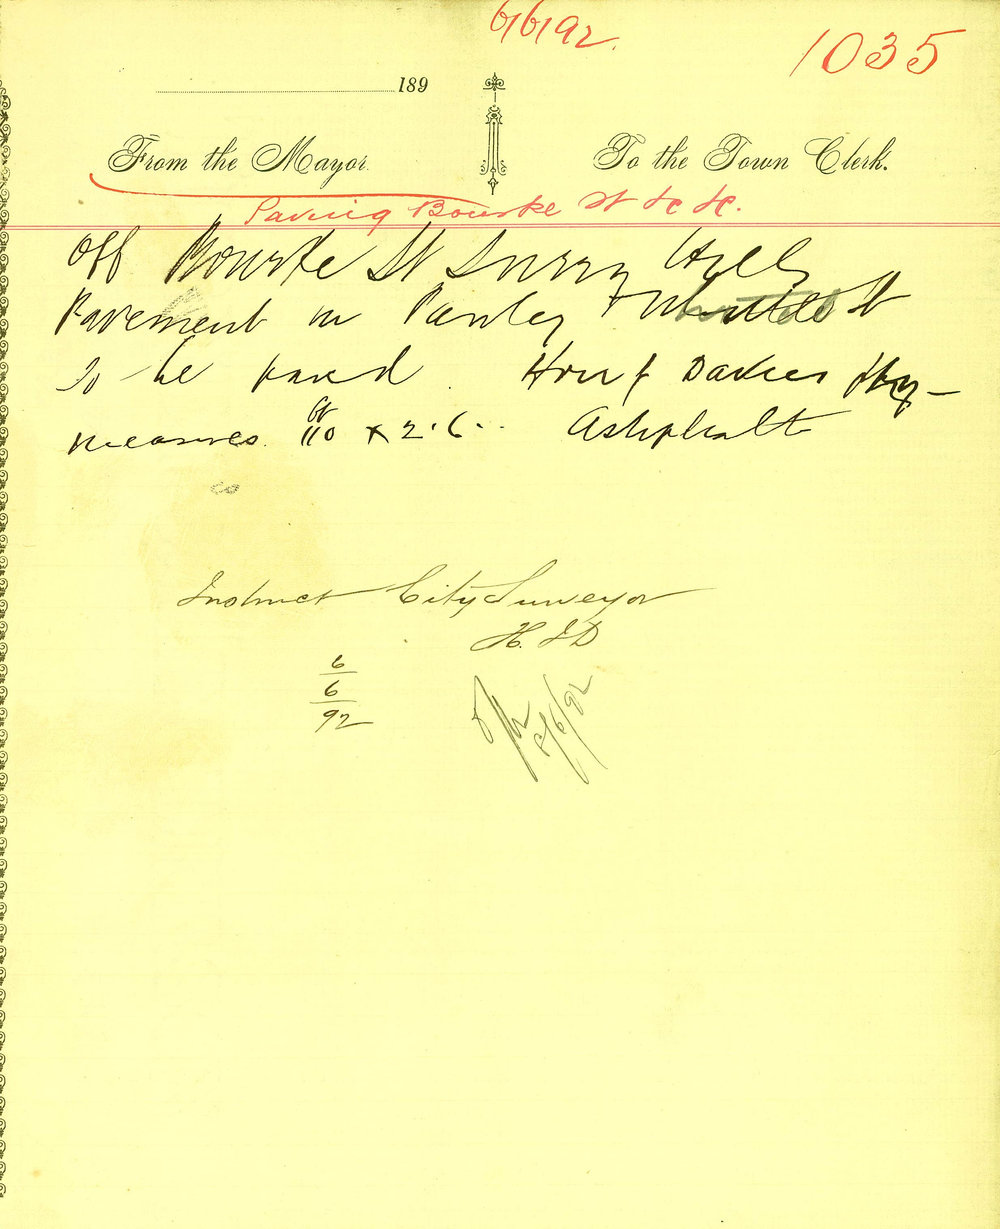 6/6/92.
1035
189
From the Mayor.
To the Town Clerk.
Paving Bourke St &c &c.
Off Bourke St Surry Hills
Pavement in Parsley + St
To be paved. Davies
measures. 110 ft x 2.6.. Ashphalt
Instruct City Surveyor
H. J D
6
6
92
/6/92